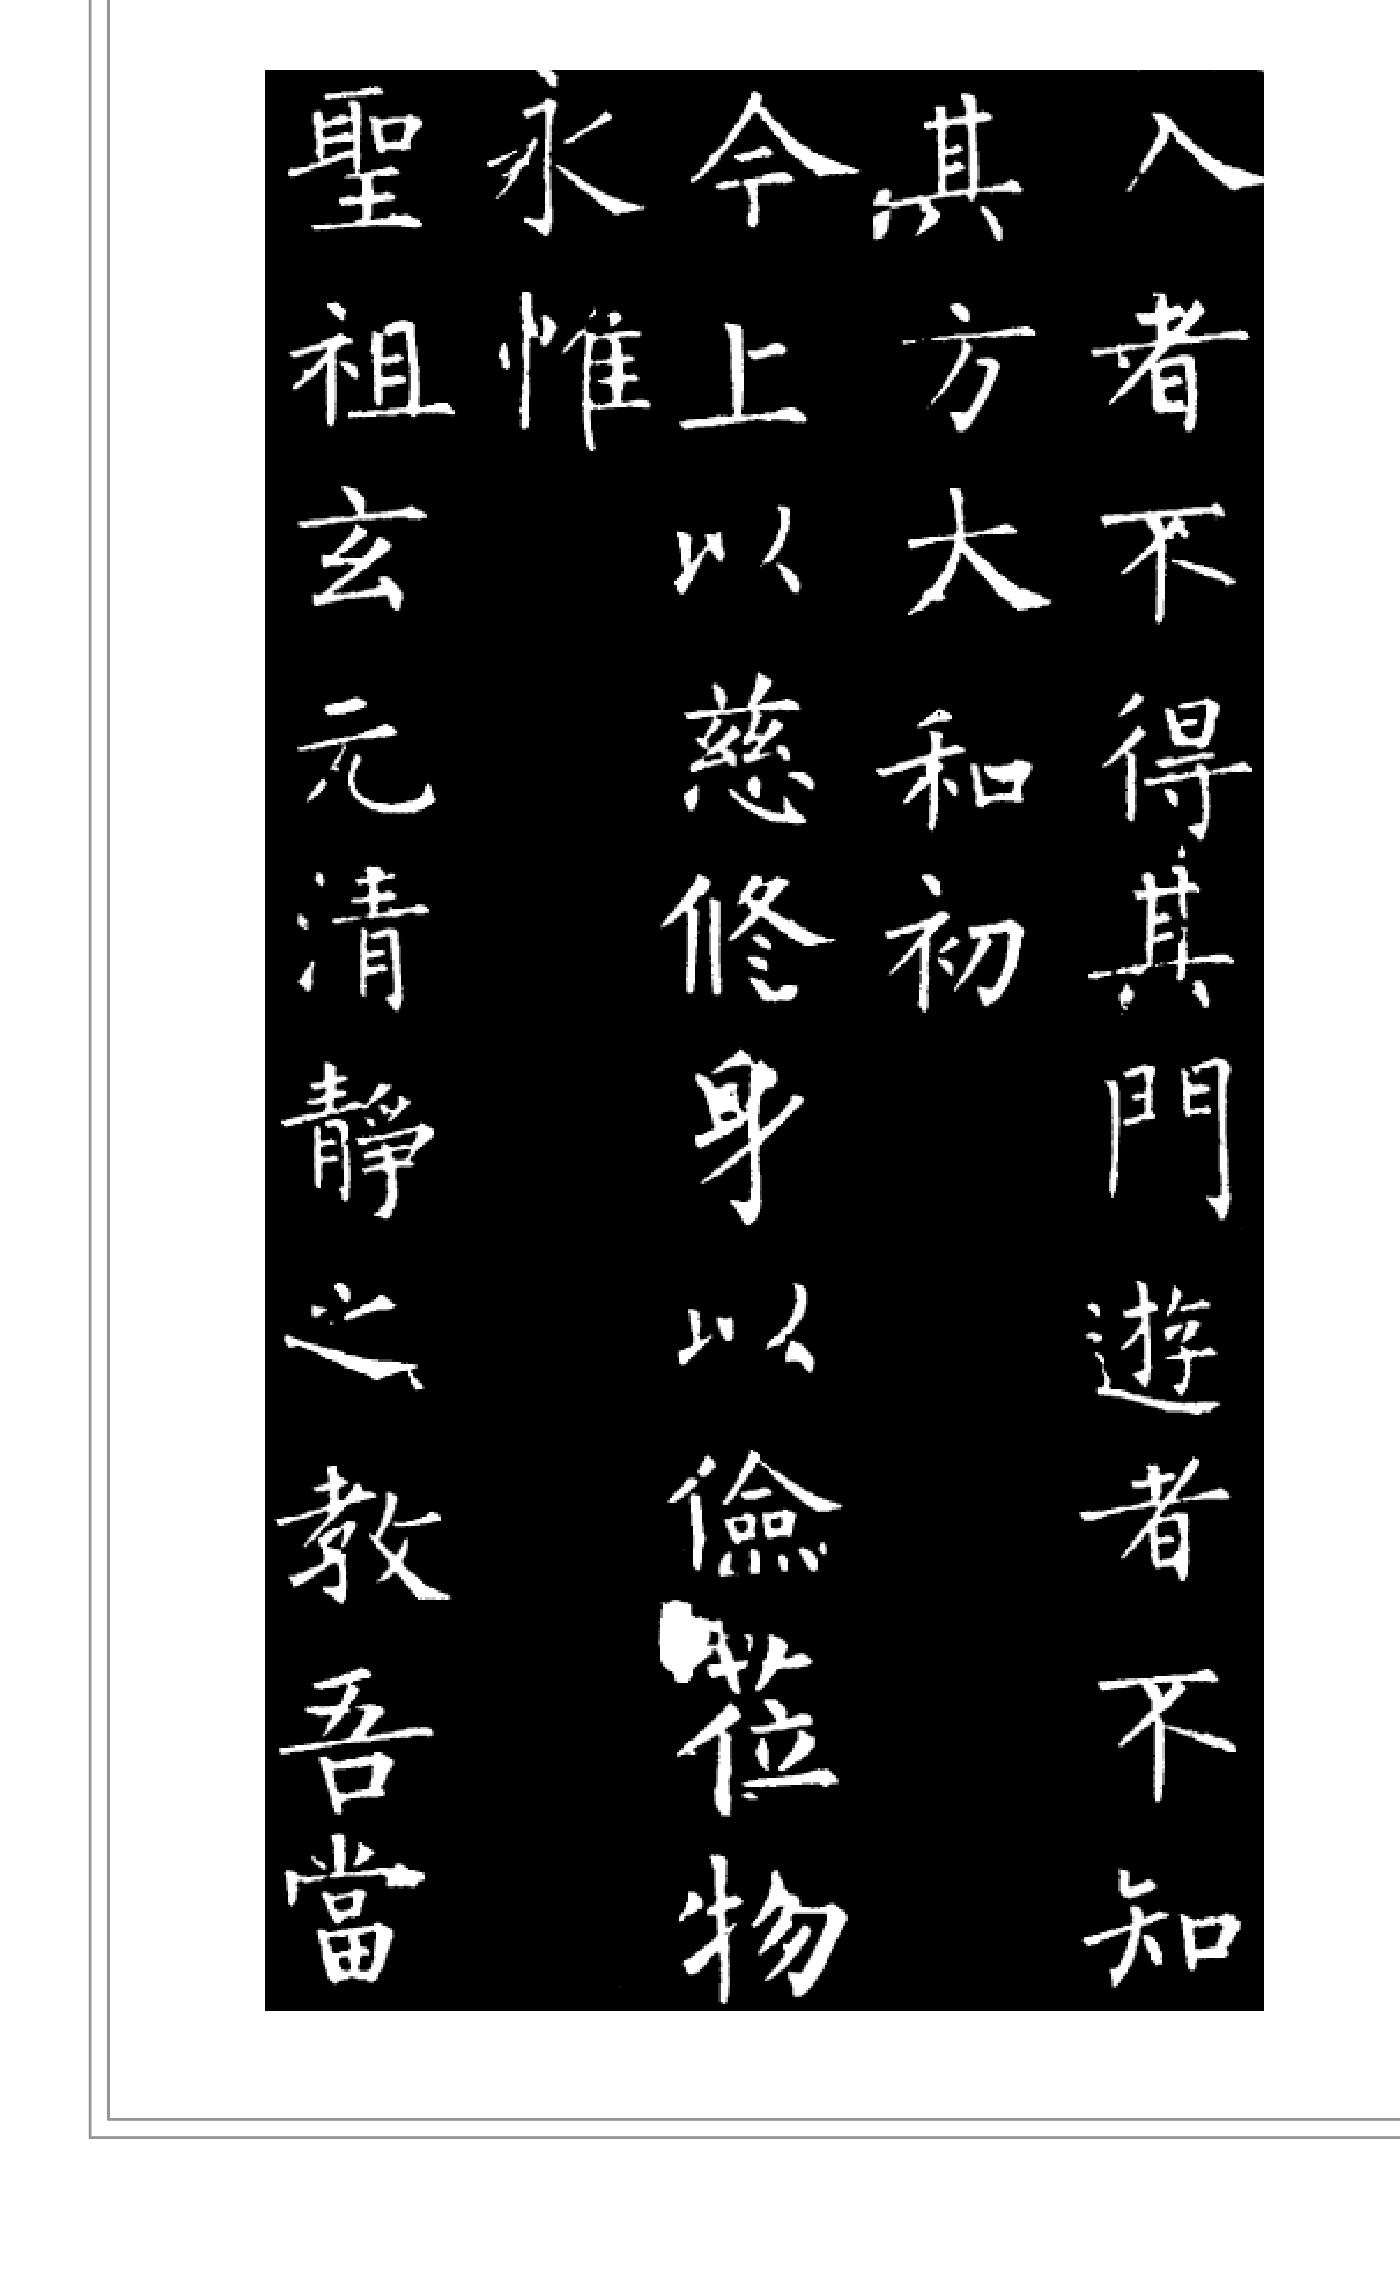 入者不得其門遊者不知
其方大和初
今上以慈修身以儉莅物
永惟
聖祖玄元清靜之教吾當